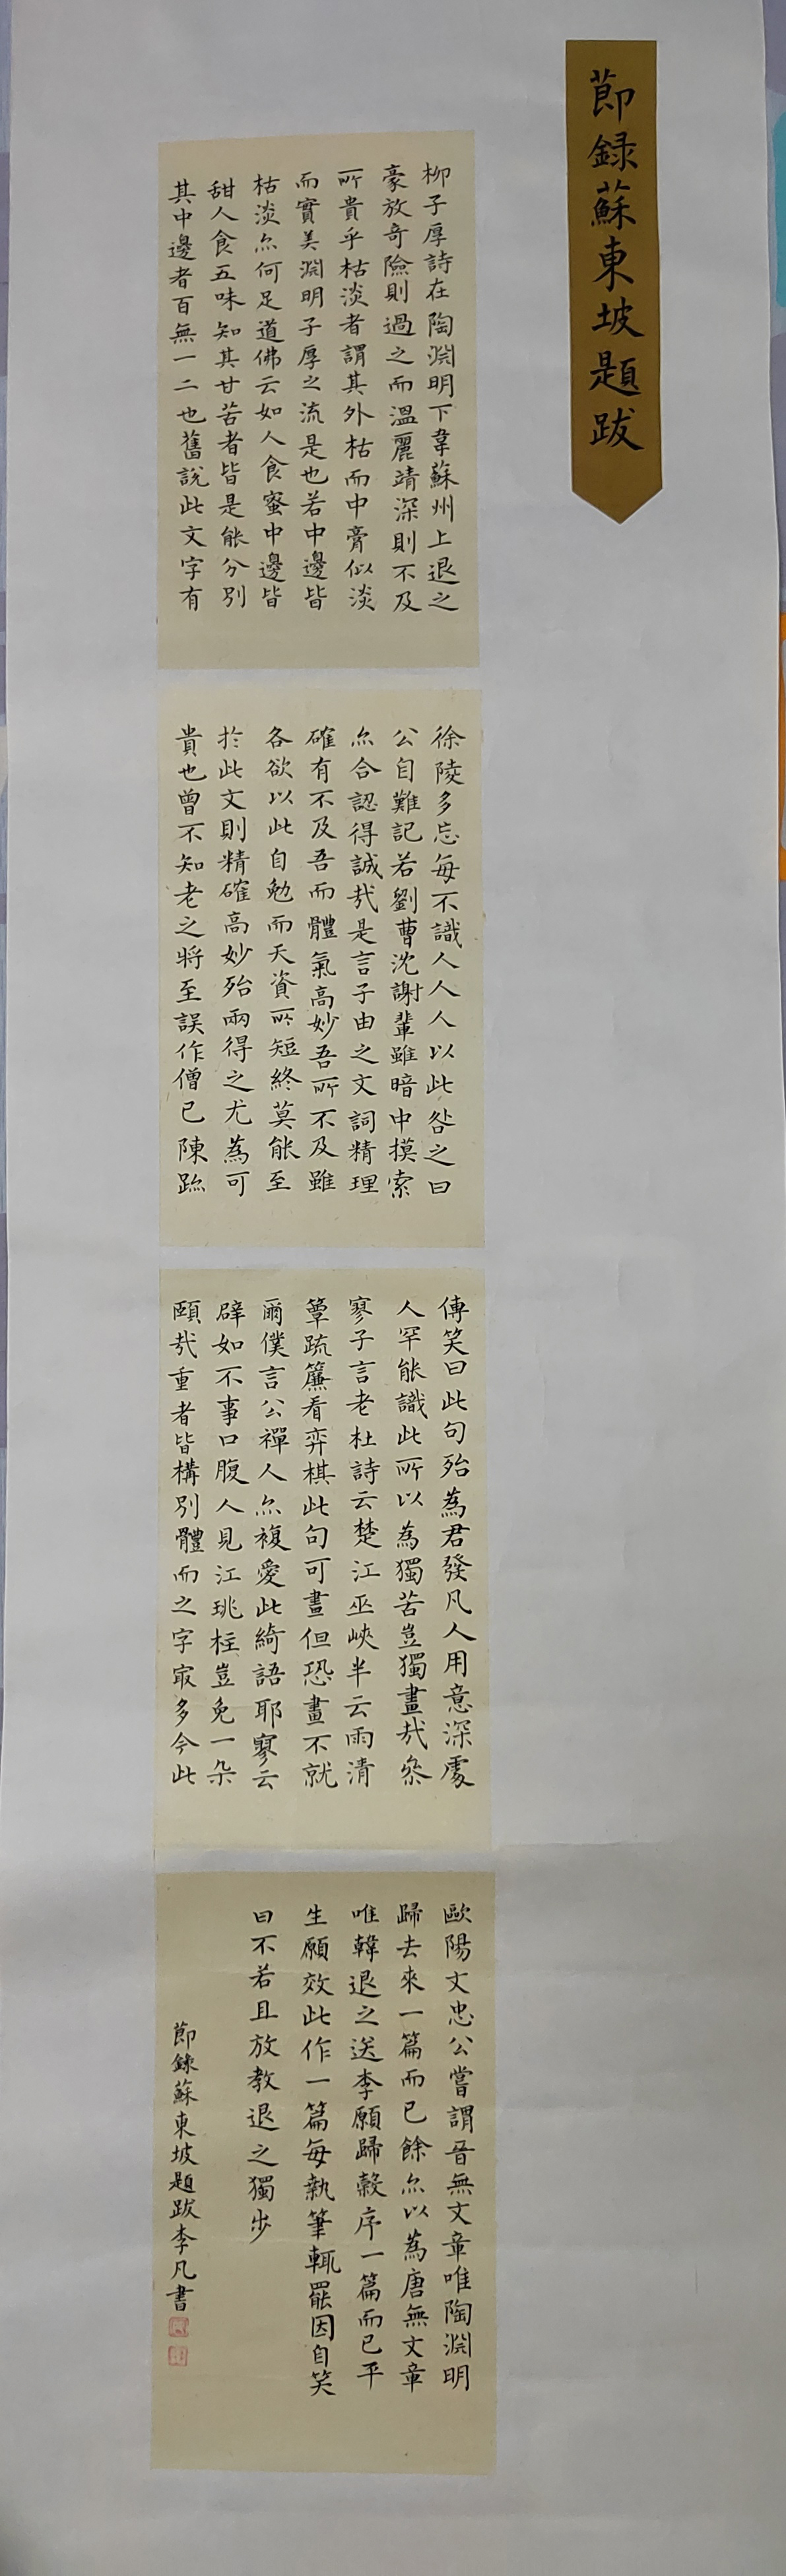 節録蘇東坡題跋
柳子厚詩在陶淵明下韋蘇州上退之
豪放奇險則過之而溫麗靖深則不及
所貴乎枯淡者謂其外枯而中膏似淡
而實美淵明子厚之流是也若中邊皆
枯淡亦何足道佛云如人食蜜中邊皆
甜人食五味知其甘苦者皆是能分別
其中邊者百無一二也舊說此文字有
徐陵多忘每不識人人人以此咎之曰
公自難記若劉曹沈謝輩雖暗中摸索
亦合認得誠哉是言子由之文詞精理
確有不及吾而體氣高妙吾所不及雖
各欲以此自勉而天資所短終莫能至
於此文則精確高妙殆兩得之尤為可
貴也曾不知老之將至誤作僧已陳跡
傳笑曰此句殆為君發凡人用意深處
人罕能識此所以為獨苦豈獨畫哉叅
寥子言老杜詩云楚江巫峽半云雨清
簟疏簾看弈棋此句可畫但恐畫不就
爾僕言公禪人亦複愛此綺語耶寥云
辟如不事口腹人見江珧柱豈免一朵
頤哉重者皆構別體而之字㝡多今此
歐陽文忠公嘗謂晉無文章唯陶淵明
歸去來一篇而已餘亦以為唐無文章
唯韓退之送李願歸穀序一篇而已平
生願效此作一篇每執筆輒罷因自笑
曰不若且放教退之獨步
節錄蘇東坡題跋李凡書